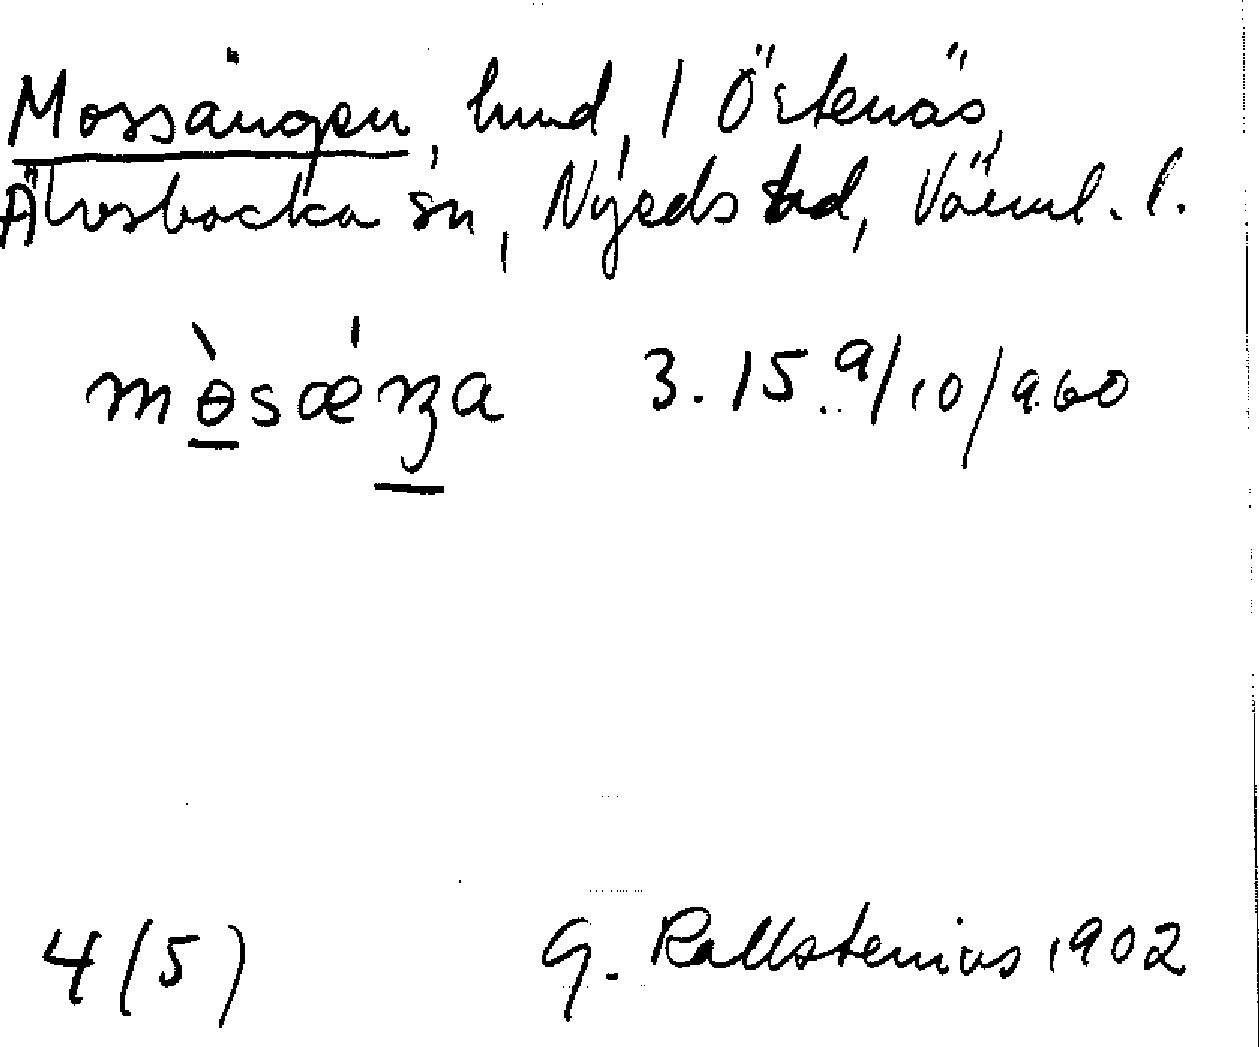 Mossängen, hmd, 1 Örtenäs,
Älvsbacka sn, Nyeds hd, Värml. l.
mòsǽŋa 3. 15 9/10/960
4(5) G. Kallstenius 1902